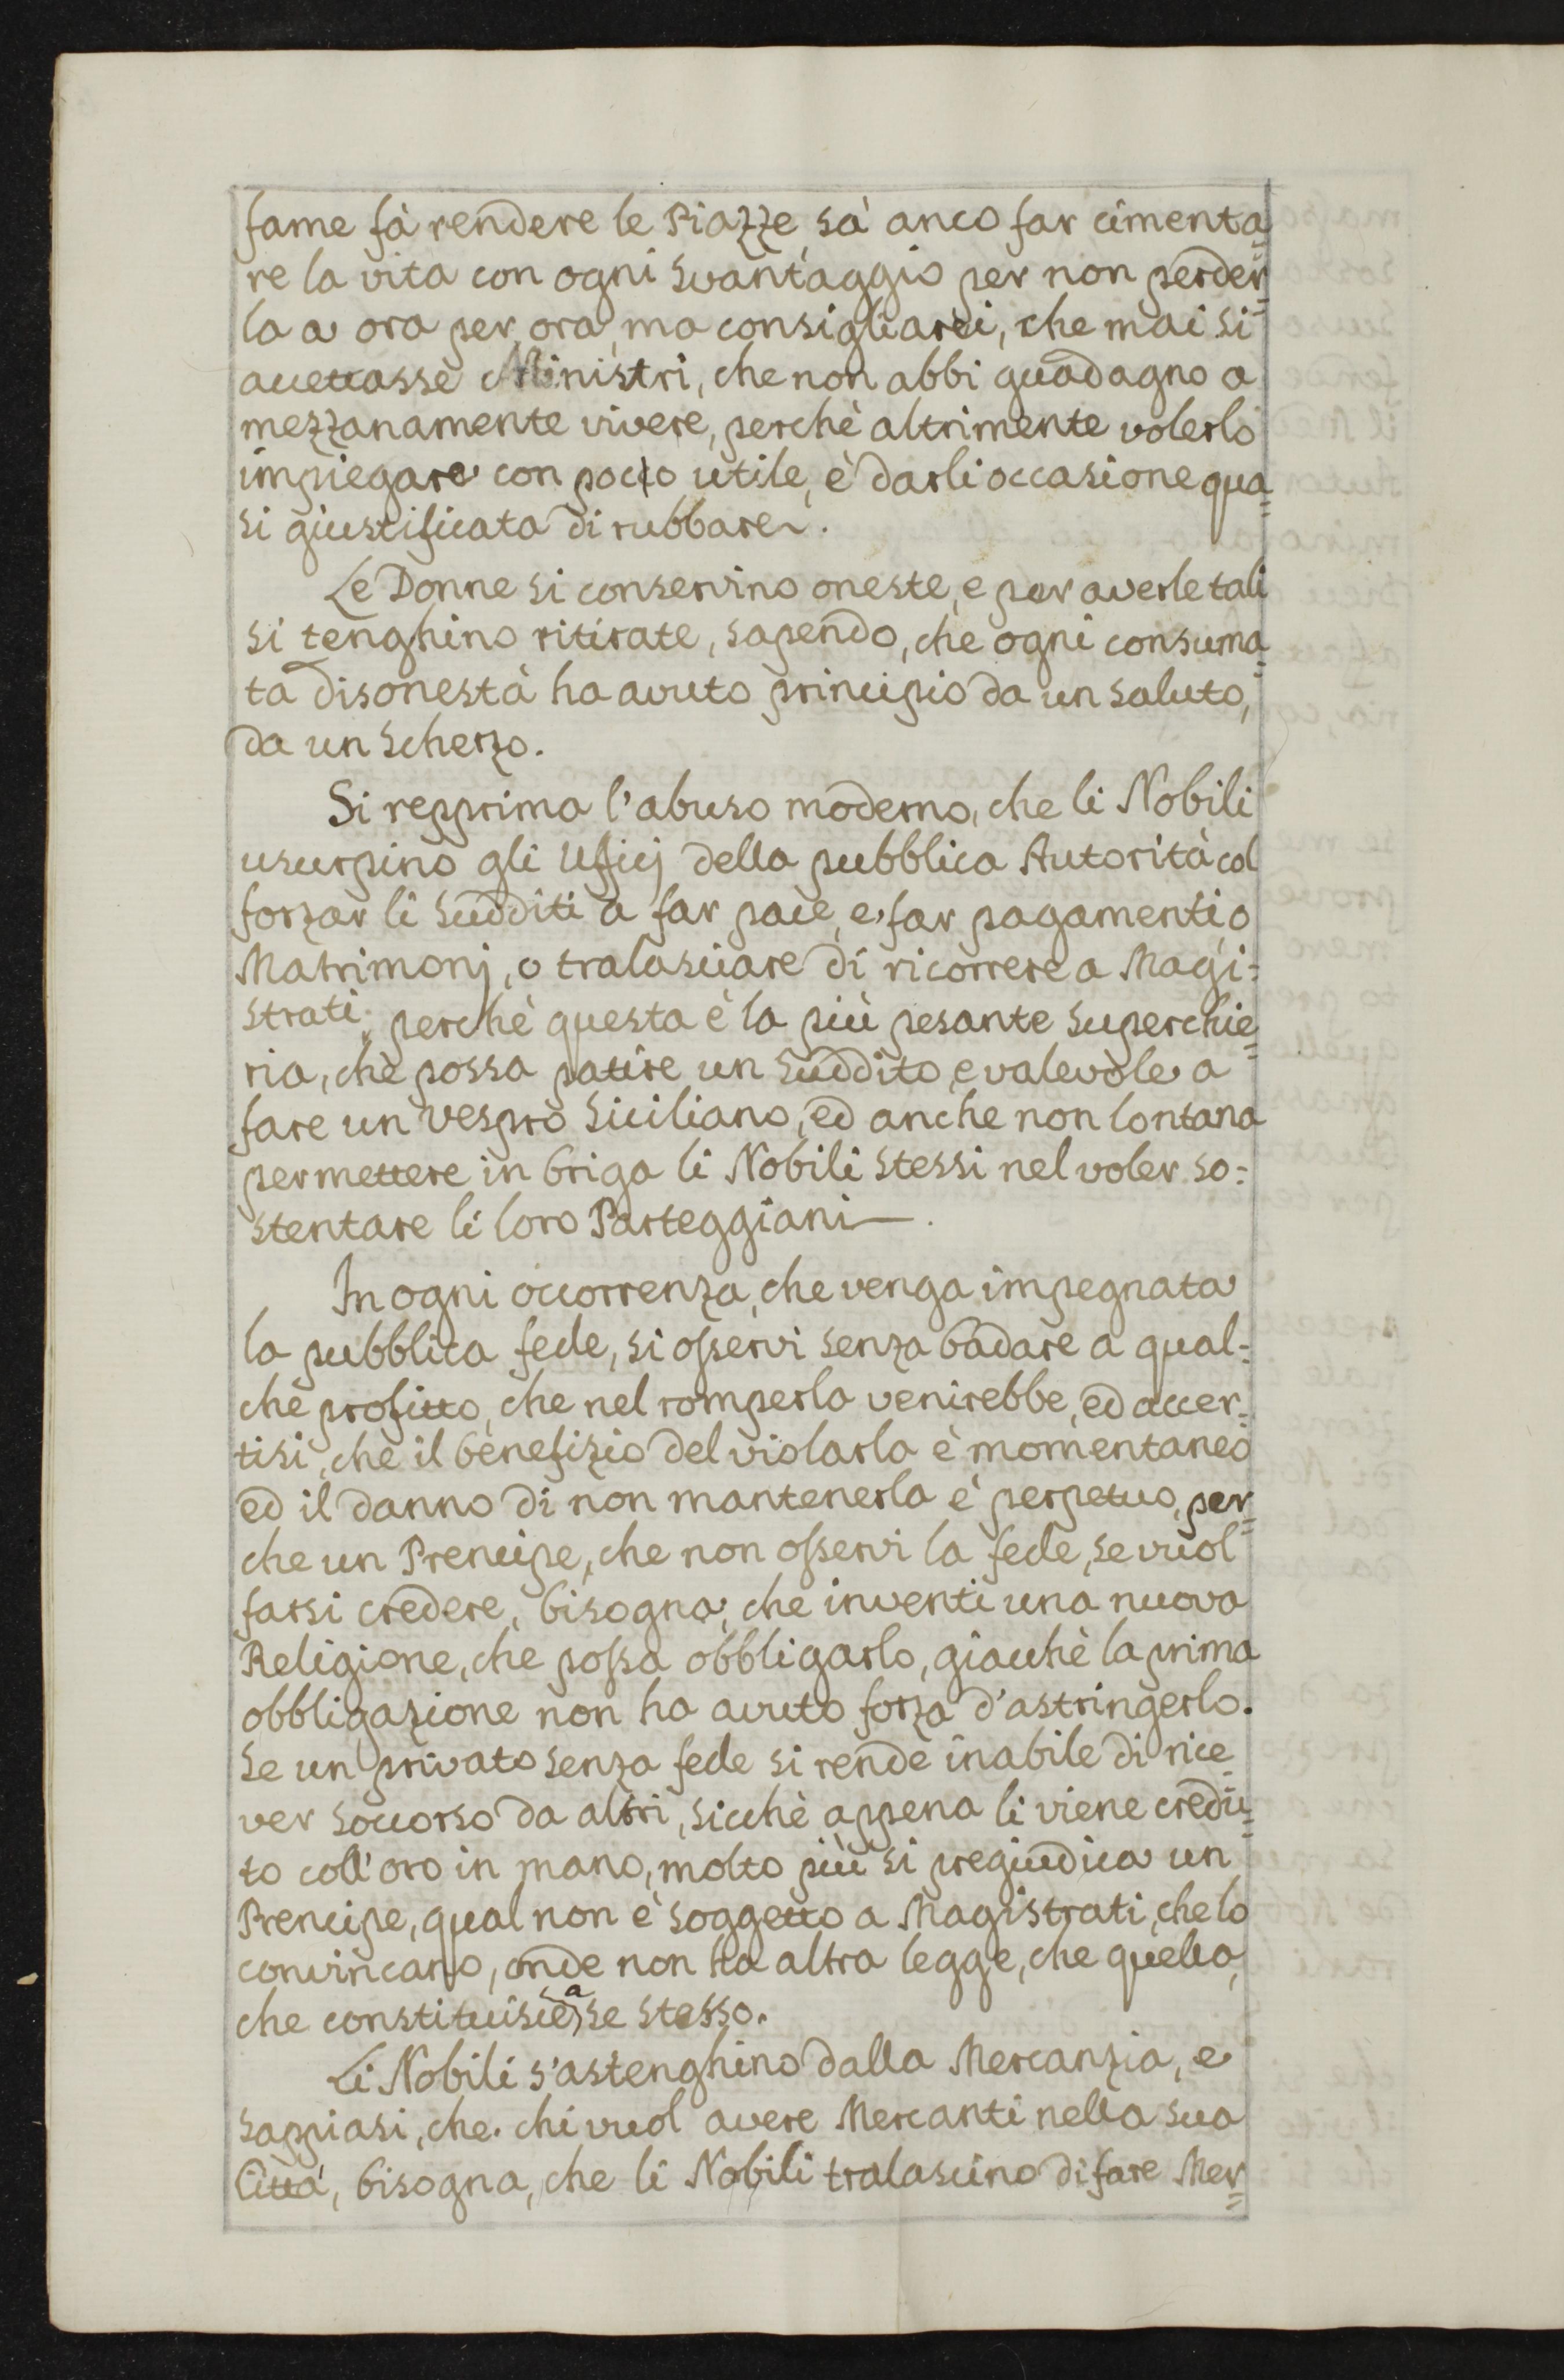 fame fà rendere le Piazze, sà anco far cimenta=
re la vita con ogni svantaggio per non perder=
la a ora per ora, ma consigliarei, che mai si
accettasse Ministri, che non abbi guadagno a
mezzanamente vivere, perchè altrimente volerlo
impiegare con poco utile, è darli occasione qua=
si giustificata di rubbare.
Le Donne si conservino oneste, e per averle tali
si tenghino ritirate, sapendo, che ogni consuma=
ta disonestà ha avuto principio da un saluto,
da un scherzo.
Si repprima l'abuso moderno, che li Nobili
usurpino gli Uffici della pubblica Autorità col
forzar li sudditi a far pace, e far pagamenti, o
Matrimonj, o tralasciare di ricorrere a Magi=
strati; perchè questa è la più pesante superchie=
ria, che possa patire un suddito, e valevole a
fare un Vespro Siciliano, ed anche non lontana
per mettere in briga li Nobili stessi nel voler so=
stentare li loro Parteggiani.
In ogni occorrenza, che venga impegnata
la pubblica fede, si osservi senza badare a qual=
che profitto, che nel romperla venirebbe, ed accer=
tisi, che il benefizio del violarla è momentaneo
ed il danno di non mantenerla è perpetuo, per=
che un Prencipe, che non osservi la fede, se vuol
farsi credere, bisogna, che inventi una nuova
Religione, che possa obbligarlo, giacchè la prima
obbligazione non ha avuto forza d'astringerlo.
Se un privato senza fede si rende inabile di rice=
ver soccorso da altri, sicchè appena li viene credu=
to coll'oro in mano, molto più si pregiudica un
Prencipe, qual non è soggetto a Magistrati, che lo
convincano, onde non ha altra legge, che quella,
che constituisce a se stesso.
Li Nobili s'astenghino dalla Mercanzia, e
sappiasi, che chi vuol avere Mercanti nella sua
Città, bisogna, che li Nobili tralascino di fare Mer=